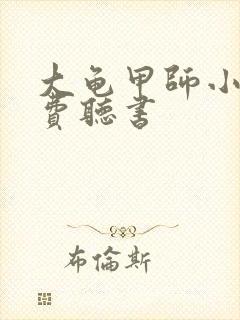 大龟甲師小
費聽書
布倫斯